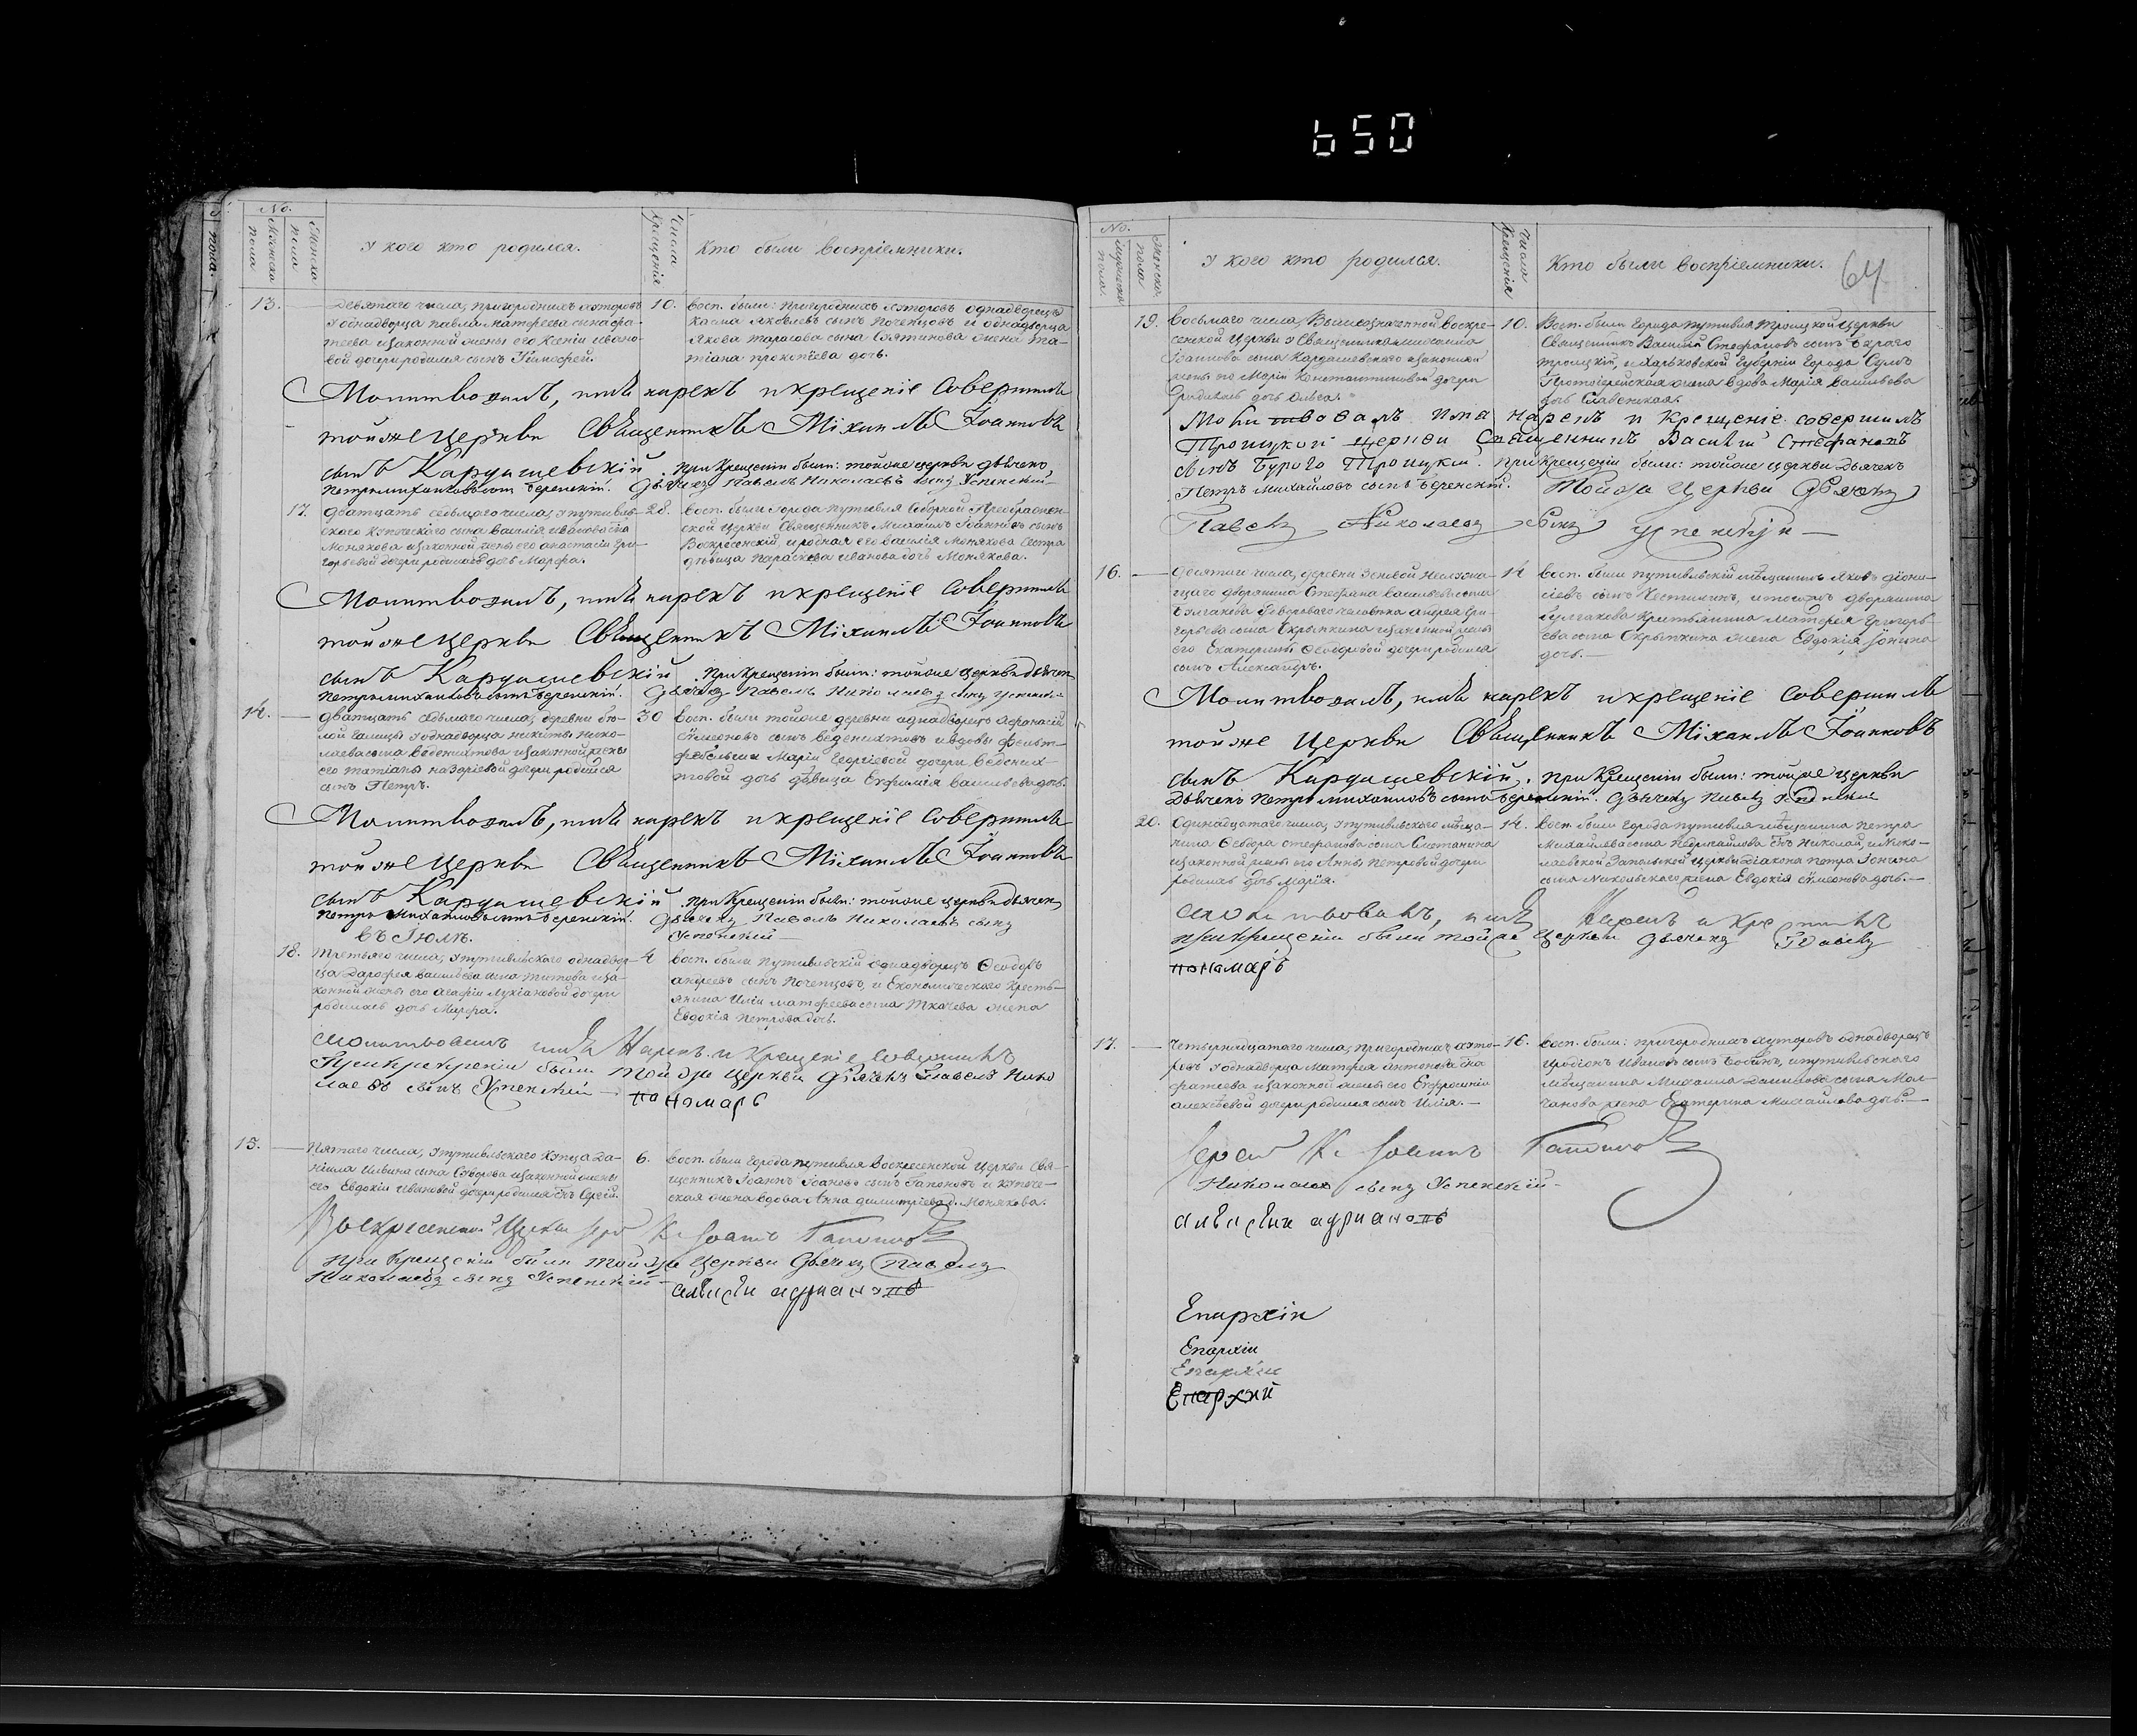 650
No.
Мужеска пола
Женска пола
У кого кто родился.
Числа крещенія
Кто были воспріемники.
13.
Девятаго числа, пригородныхъ хуторовъ
у однадворца Павла Матфеева сына Фра-
теева изаконной жены его Ксеніи Ивано-
вой дочери родился сынъ Тимофей.
10.
Восп. были: пригородныхъ хуторовъ однадворецъ
Касма Яковлевъ сынъ Поченцовъ и однадворца
Якова Тарасова сына жена Та-
тіана Прокопіева дочь.
Молитвовалъ, имя нарекъ и крещеніе совершилъ
тойже Церкви Священникъ Міхаилъ Іоанновъ
сынъ Кардашевскій. При крещеніи были: тойже церкви дьячекъ,
Петръ Михайловъ сынъ Беренскій. Дьячекъ Павелъ Николаевъ сынъ Успенскій
17.
Дватцать седьмаго числа, у путивль-
скаго купеческаго сына Василія Иванова сна
Монякова изаконной жены его Анастасіи Гри-
горьевой дочери родилась дочь Марфа.
28.
Восп. были города Путивля Соборной Преображен-
ской церкви Священникъ Михаилъ Іоанновъ сынъ
Воскресенскій, и родная его Василія Монякова сестра
дѣвица Параскева Иванова дочь Монякова.
Молитвовалъ, имя нарекъ и крещеніе совершилъ
тойже Церкви Священникъ Міхаилъ Іоанновъ
сынъ Кардашевскій. При крещеніи были: тойже церкви дьячек
Петръ Михайловъ сынъ Беренскій. Дьячекъ Павелъ Николаевъ сынъ
14.
Дватцать седьмаго числа, деревни Бѣ-
лой у однадворца Никиты Нико-
лаева сына изаконной жены
его Татіаны Назаріевой дочери родился
сынъ Петръ.
30
Восп. были тойже деревни однадворецъ Афанасій
Сѵмеоновъ сынъ и вдовы
Маріи Георгіевой дочери
дочь дѣвица Евфимія Васильева дочь.
Молитвовалъ, имя нарекъ и крещеніе совершилъ
тойже Церкви Священникъ Міхаилъ Іоанновъ
сынъ Кардашевскій. При крещеніи были: тойже церкви дьячек,
Петръ Михайловъ сынъ Беренскій. Дьячекъ Павелъ Николаевъ сынъ
Успенскій
Въ Іюлѣ.
18.
Третьяго числа, у путивльскаго однадвор-
ца Дарофея Васильева сына Титова иза-
конной жены его Агафіи Лукіановой дочери
родилась дочь Марфа.
4
Восп. были путивльскій однадворецъ Ѳеодоръ
Андреевъ сынъ Поченцовъ, и Економическаго кресть-
янина Иліи Матфеева сына Ткачева жена
Евдокія Петрова дочь.
Молитвовалъ имя Нарекъ и крещеніе совершилъ
При крещеніи были той же церкви дьячекъ Павелъ Нико
лаевъ сынъ Успенскій
пономаръ
15.
Пятаго числа, у путивльскаго купца Да-
ніила Ильина сына Суворова изаконной жены
его Евдокіи Ивановой дочери родился снъ Сергій.
6.
Восп. были города Путивля Воскресенской церкви Свя-
щенникъ Іоаннъ Іоановъ сынъ Гапоновъ и купече-
ская жена вдова Анна Димитріева д. Монякова.
Воскресенской Церкви Іоаннъ Гапоновъ
При крещеніи были той же церкви дьячекъ Павелъ
Николаевъ сынъ Успенскій
алексѣи адриановъ
64
No.
Мужеска пола
Женска пола
У кого кто родился.
Числа крещенія
Кто были воспріемники.
19.
Восьмаго числа, Вышеозначенной Воскре-
сенской церкви у Священника Михаила
Іоаннова сына Кардашевскаго изаконной
жены его Маріи Константиновой дочери
родилась дочь Ольга.
10.
Восп. были города Путивля Троицкой церкви
Священникъ Василій Стефановъ сынъ Бураго
Троицкій, и Харьковской Губерніи города Сумъ
Протоіерейская жена вдова Марія Васильева
дочь Славенская.
Молитвовалъ имя Нарекъ и Крещеніе совершилъ
Троицкой церкви Священникъ Василій Стефановъ
сынъ Бураго Троицкій. При крещеніи были: тойже церкви Дьячекъ
Петръ Михайловъ сынъ Беренскій. Тойже Церкви Дьячекъ
Павелъ Николаевъ Сынъ Успенскій
16.
Десятаго числа, деревни Зеновой
щаго дворянина Стефана Васильева сына
Булгакова дворового человѣка Андрея Гри-
горьева сына Скрыпкина изаконной жены
его Екатерины Ѳеодоровой дочери родился
сынъ Александръ.
14
Восп. были путивльскій мѣщанинъ Яковъ Діони-
сіевъ сынъ и дворянина
Булгакова крестьянина Матфея Григорь-
ева сына Скрыпкина жена Евдокія Іонина
дочь.
Молитвовалъ, имя нарекъ и крещеніе совершилъ
тойже Церкви Священникъ Міхаилъ Іоанновъ
сынъ Кардашевскій. При крещеніи были: тойже церкви
Дьячекъ Петръ Михайловъ сынъ Беренскій. Дьячекъ Павелъ
20.
Одинадцатаго числа, у путивльскаго мѣща-
нина Ѳеодора Стефанова сына Сметанина
изаконной жены его Анны Петровой дочери
родилась дочь Марія.
14.
Восп. были города Путивля мѣщанина Петра
Михайлова сына снъ Николай, и Нико-
лаевской Запольской церкви Діакона Петра Іонина
сына Никольскаго жена Евдокія Сѵмеонова дочь.
Молитвовалъ, имя Нарекъ и
при крещеніи были той же церкви дьячекъ Павелъ
пономаръ
17.
Четырнадцатаго числа, пригородныхъ хуто-
ровъ у однадворца Матфея Антонова сна
Фратеева изаконной жены его Евфросиніи
Алексѣевой дочери родился сынъ Илія.
16.
Восп. были: пригородныхъ хуторовъ однадворецъ
Иродіонъ Ивановъ сынъ Бобинъ, и путивльскаго
мѣщанина Михаила Данилова сына Мол-
чанова жена Екатерина Михайлова дочь.
Іерей Іоаннъ Гапоновъ
Николаевъ сынъ Успенскій
алексѣи адриановъ
Епархіи
Епархіи
Епархіи
Епархіи